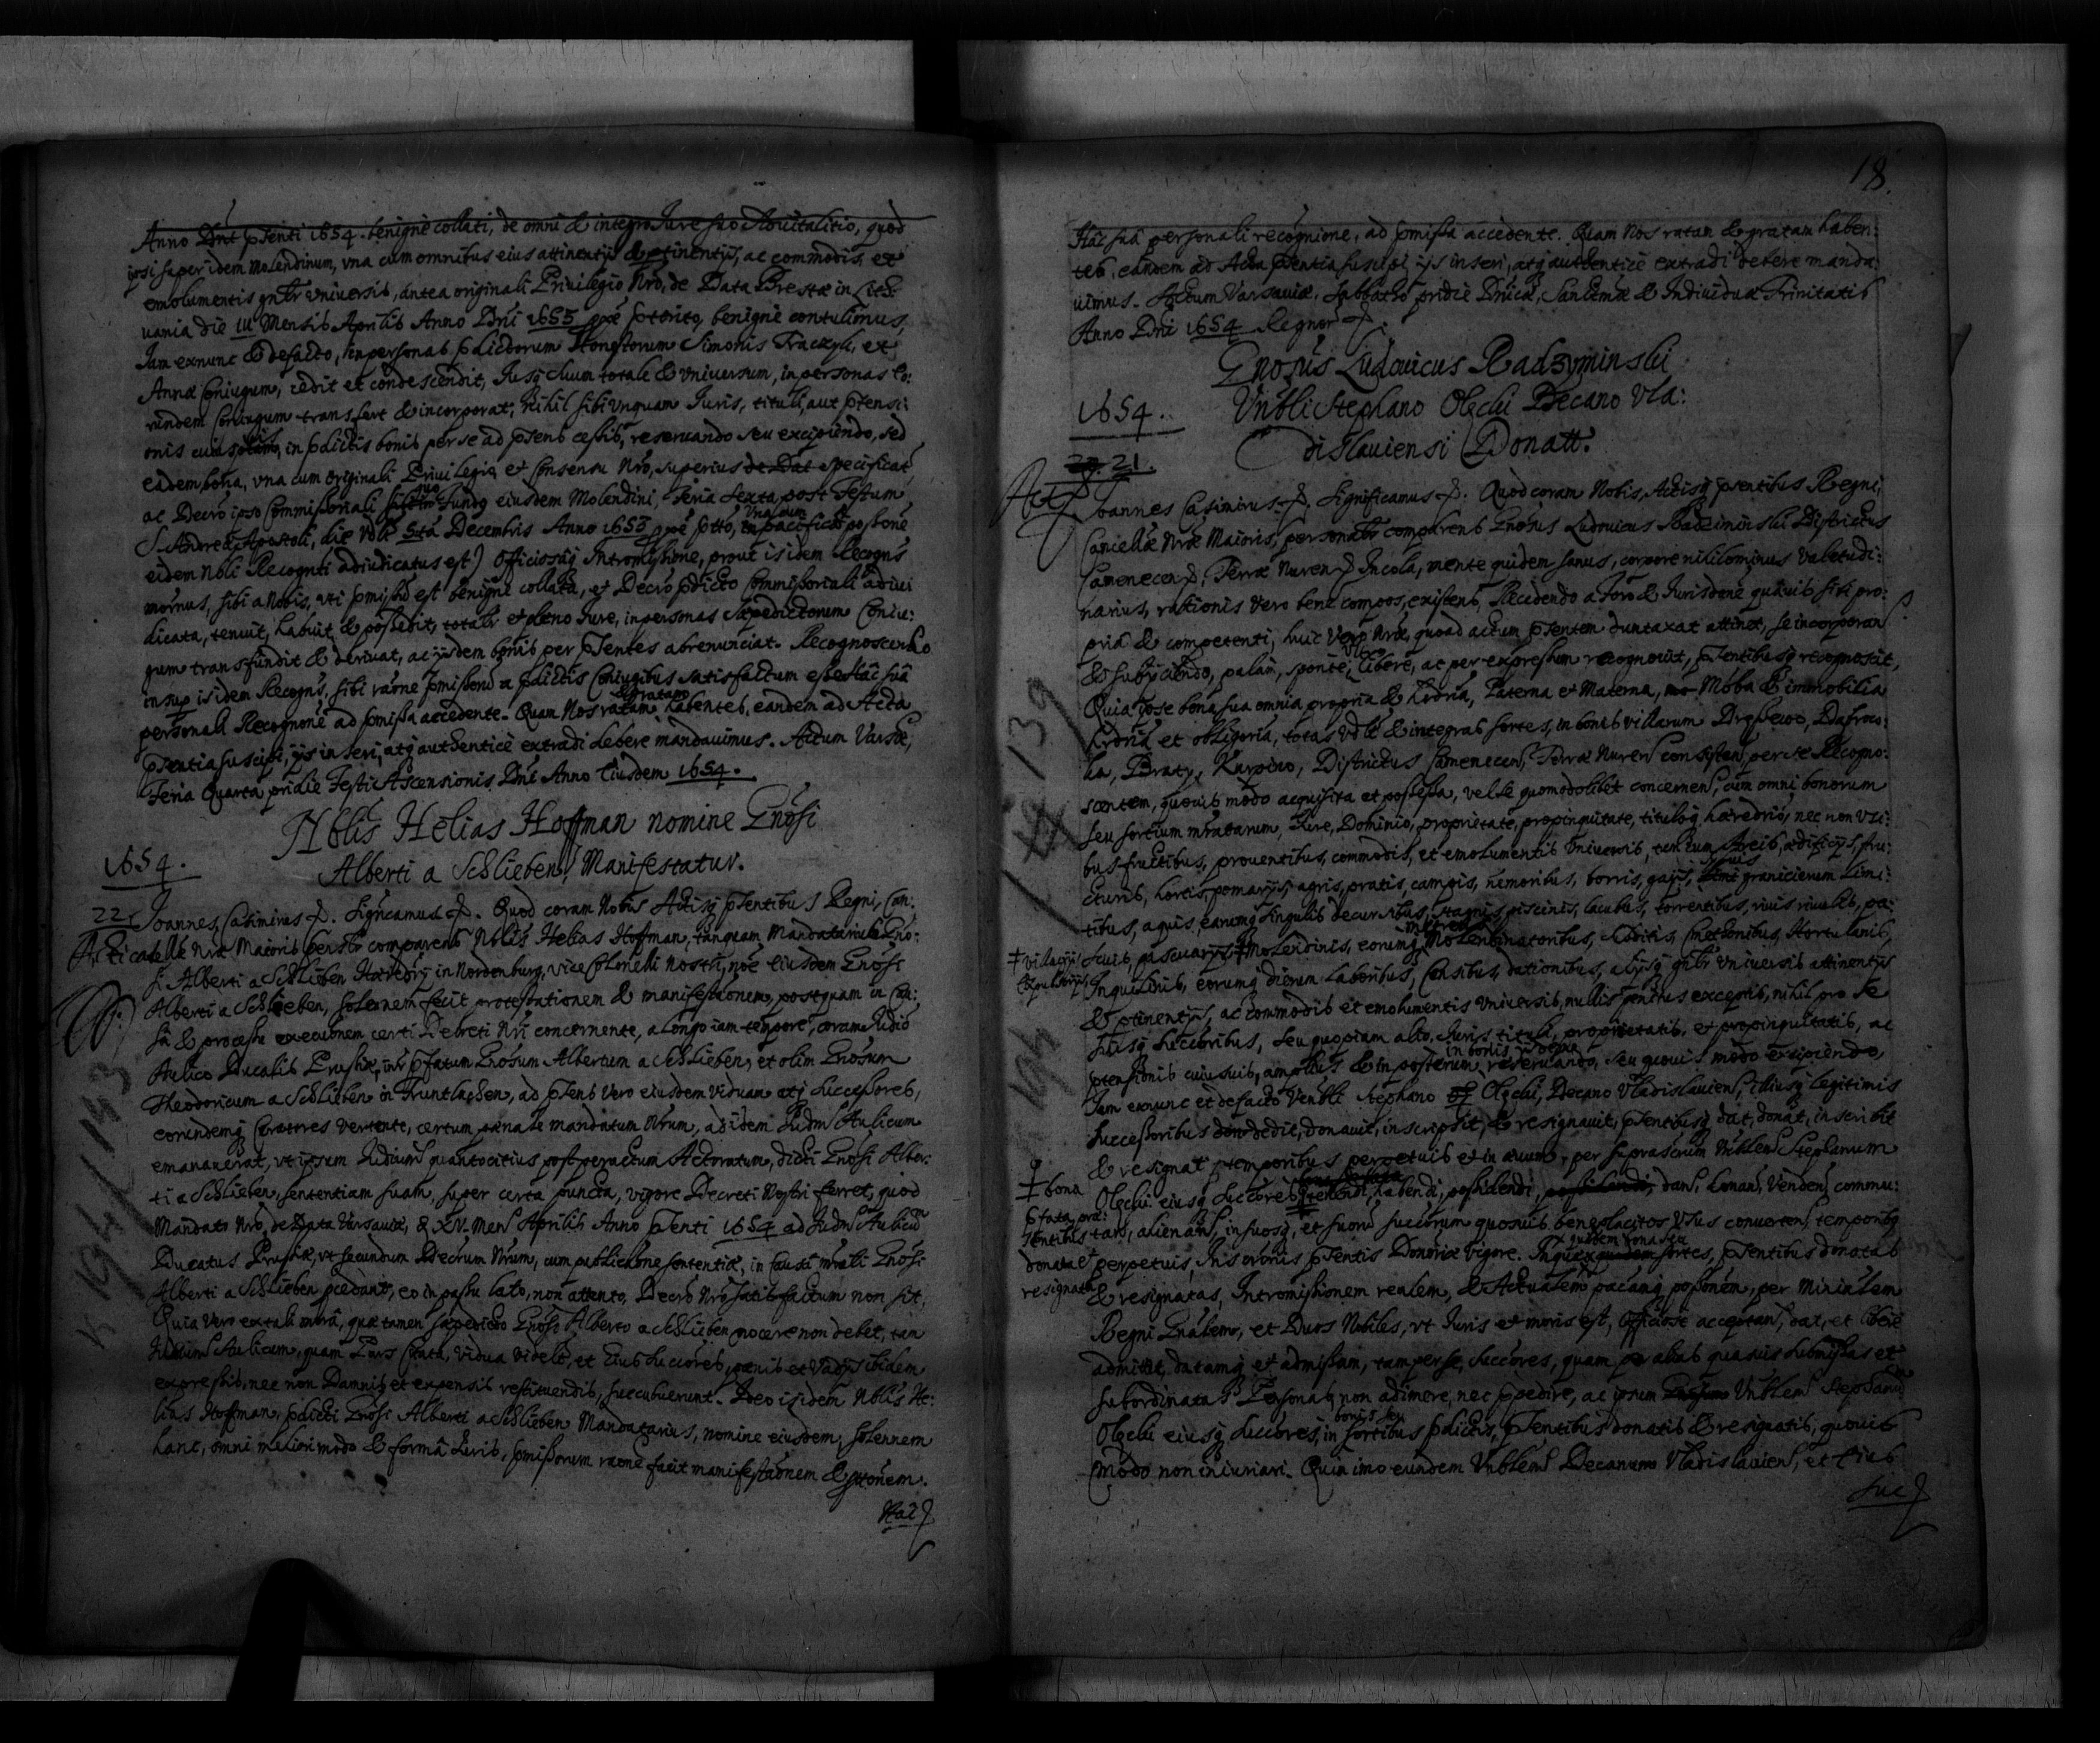 Anno Dni pñti 1654. benigne collati, de omni & integro Iure suo Advitalitio, quod
ipsi super idem Molendinum, vna cum omnibus eius attinentijs & ptinentijs, ac commodis, et
emolumentis gnlr vniversis, antea originali Privilegio Nro, de Data Brestæ in Litu:
vania die III Mensis Aprilis Anno Dni 1653 benigne contulimus,
Iam exnunc & defacto, in personas pdictorum Honestorum Simonis Trackyl, et
Annæ Coniugum, cedit et condescendit, Iusq suum totale & vniversum, in personas eo:
rundem Coniugum transfert & incorporat, nihil sibi vnquam Iuris, tituli, aut ptensi:
onis cuiusvis, in pdictis bonis per se ad psens cessis, reservando seu excipiendo, sed
eadem bona, vna cum originali Privilegio et Consensu Nro, superius de Dat specificat
ac Decro ipso Commissoriali quo Fundo eiusdem Molendini, Feria Sexta post Festum
S. Andreæ Apostoli, die vdlt 5ta Decembris Anno 1653 vna cum pacifica possone
eidem Nbli Recognti adiudicatus est) Officiosaq Intromissione, prout is idem Recogns
sibi a Nobis, vti pmissu est benigne collata, et Decro pdicto Commissoriali adiu
dicata, tenuit, habuit & possedit, totalr et pleno Iure, in personas sæpedictorum Coniu:
gum transfundit & derivat, ac ijsdem bonis per psentes abrenunciat. Recognoscendo
insup is idem Recogns, sibi raone pmissoru a pdictis Coniugibus satisfactum esse Hac sua
personali Recognone ad pmissa accedente. Quam Nos ratam & gratam habentes, eandem ad Acta
psentia suscipi, ijs inseri, atq authentice extradi debere mandavimus. Actum Varsæ,
Feria Quarta pridie Festi Ascensionis Dni Anno Eiusdem 1654.
Nblis Helias Hoffman nomine Gnosi
Alberti a Schlieben, Manifestatur.
1654.
22 Ioannes Casimirus. Significamus. Quod coram Nobis Actisq psentibus Regni, Can:
cellæ Nræ Maioris persolr comparens Nblis Helias Hoffman, tanquam Mandatarius Gno:
si Alberti a Schlieben Hæredis in Nordenburg, vice Colonelli nostri, noe Eiusdem Gnosi
Alberti a Schlieben, solemnem fecit protestationem & manifestaonem, postquam in Cau:
sa & processu execuonem certi Decreti Nri concernente, a longo iam tempore, coram Iudio
Aulico Ducalis Prussiæ, intr pfatum Gnosum Albertum a Schlieben, et olim Gnosum
Theodoricum a Schlieben in Truntlachen, ad psens vero eiusdem Viduam atq Successores,
eorundemq Curatores vertente, certum pænale mandatum Nrum, ad idem Iudm Aulicum
emanauerat, vt ipsum Iudicium quantocitius post peractum Actoratum, dicti Gnosi Alber:
ti a Schlieben, sententiam suam, super certa puncta, vigore Decreti Nostri ferret, quod
Mandato Nro, de Data Varsaviæ, XV. Mens Aprilis Anno psenti 1654 ad Iudm Aulicu
Ducatus Prussiæ, vt secundum Decrum Nrum, cum publicaone sententiæ, in causa Gnosi
Alberti a Schlieben pcedant, eo in passu lato, non attento, Decro Nro satisfactum non sit,
Quia vero ex tali mora, quæ tamen sæpedicto Gnoso Alberto a Schlieben nocere non debet, tam
Iudicium Aulicum, quam Pars Citata, Vidua videlt, et Eius Succores, pænis et Vadijs ibidem
expressis, nec non Damnis et expensis restituendis, succubuerunt. Ideo is idem Nblis He:
lias Hoffman, pdicti Gnosi Alberti a Schlieben Mandatarius, nomine eiusdem, solennem
hanc, omni meliori modo & forma Iuris, pmissorum raone facit manifestaonem & ptaonem.
Hac
18.
Hac sua personali recognione, ad pmissa accedente. Quam Nos ratam & gratam haben:
tes, eandem ad Acta psentia suscipi, ijs inseri, atq authentice extradi debere manda:
uimus. Actum Varsaviæ, Sabbatho pridie Dnicæ, Sanctissmæ & Individuæ Trinitatis
Anno Dni 1654 Regnor
Gnosus Ludovicus Radzyminski
1654. Vnbli Stephano Olechi Decano Vla:
dislaviensi Donatt.
21.
Ioannes Casimirus. Significamus. Quod coram Nobis, Actisq psentibus Regni,
Cancellæ Nræ Maioris, personalr comparens Gnosus Ludovicus Radziminski Districtus
Camenecen, Terræ Nuren Incola, mente quidem sanus, corpore nihilominus valetudi:
narius, rationis vero bene compos, existens, Recedendo a Foro & Iurisdone quavis sibi pro:
pria & competenti, huic vero Nræ, quoad actum psentem duntaxat attinet, se incorporan
& subijciendo, palam, sponte, libere, ac per expressum recognovit, psentibusq recognoscit,
Quia ipse bona sua omnia propria & hæredria, Paterna et Materna, Moba & immobilia
hæredria et obligoria, totas vdlt & integras sortes, in bonis villarum Drossewo, Dabrow:
ka, Braty, Kurpiow, Districtus Camenecen, Terræ Nuren consisten, per se Recogno:
scentem, quovis modo acquisita et possessa, vel se quomodolibet concernen, cum omni bonorum
seu sortium mratarum, Iure, Dominio, proprietate, propinquitate, tituloq hæredrio, nec non vsi:
bus, fructibus, proventibus, commodis, et emolumentis vniversis, tantum Areis, ædificijs, fru:
cturis, hortis, pomarijs, agris, pratis, campis, nemoribus, borris, gaijs, granicierum limi:
tibus, aquis, earumq singulis decursibus, stagnis, piscinis, lacubus, torrentibus, rivis, rivulis, pa:
scuis, pascuarijs, Molendinis, eorumq Molendinatoribus, subditis, Cmethonibus, Hortulanis,
Inquilinis, eorumq dierum Laboribus, Censibus, dationibus, alijsq gnlr vniversis attinentijs
& ptinentijs, ac commodis et emolumentis vniversis, nullis penitus exceptis, nihil pro se
suisq succoribus, seu quopiam alio, Iuris, tituli, proprietatis, et propinquitatis, ac
ptensionis cuiusvis, amplius & in posterum in bonis reservando, seu quovis modo excipiendo,
Iam exnunc et defacto Venbli Stephano Olechi, Decano Vladislavien, illiusq legitimis
successoribus dedit, donavit, inscripsit, & resignavit, psentibusq dat, donat, inscribit
& resignat temporibus perpetuis et in ævum, per suprascrium Vnblem Stephanum
Olechi eiusq Succores tenendi, habendi, possidendi, dan, donan, venden, commu:
tan, alienan, in suosq, et suoru succorum quosvis beneplacitos vsus converten, temporibq
perpetuis, Inscronis psentis Donoriæ vigore. In quæ quidem bona seu sortes, psentibus donatas
& resignatas, Intromissionem realem, & Actualem pacamq possonem, per Minirlem
Regni Gnalem, et Duos Nobiles, vt Iuris et moris est, Officiose acceptan, dat, et libere
admittit, datamq et admissam, tam per se, Succores, quam per alias quasvis submissas et
subordinatas Personas, non adimere, nec ppedire, ac ipsum Vnblem Stephanu
Olechi eiusq Succores, in bonis seu sortibus pdictis, psentibus donatis & resignatis, quovis
modo non iniuriari. Quin imo eundem Vnblem Decanum Vladislavien, et Eius
Suc
bona
pfata, præ:
sentibus
donata et
resignata